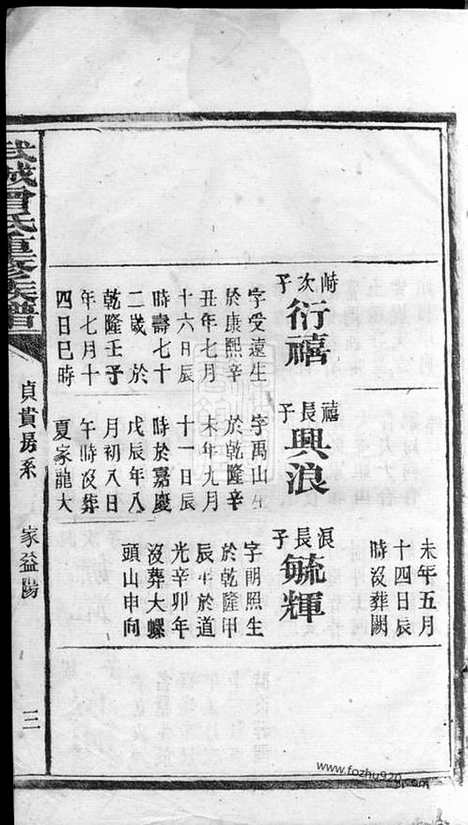 峙次子
衍禧
字受遠生
於康熙辛
丑年七月
十六日辰
時壽七十
二歲於
乾隆壬子
年七月十
四日巳時
禧長子
興浪
字禹山生
於乾隆辛
未年九月
十一日辰
時於嘉慶
戊辰年八
月初八日
午時沒葬
夏家龍大
未年五月
十四日辰
時沒葬闕
浪長子
毓輝
字朗照生
於乾隆甲
辰年於道
光辛卯年
沒葬大螺
頭山申向
武城曾氏重修族譜
貞賞房系
家益陽
三
www.fozhu920.com